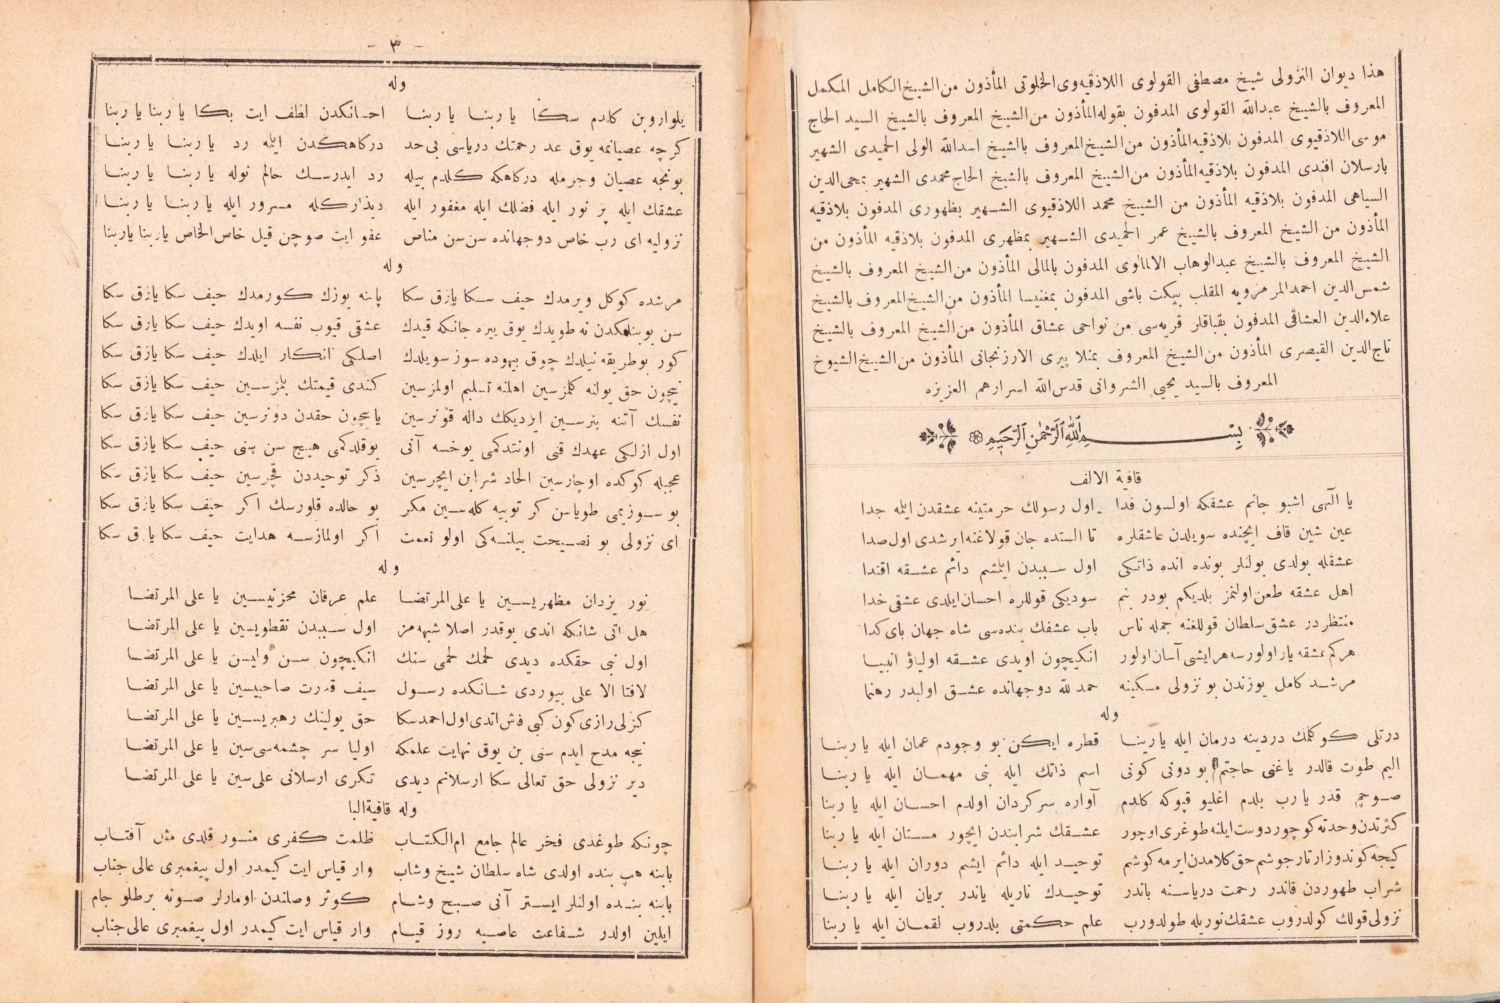 هذا ديوان النزولى شيخ مصطفى القولوى اللاذقيه‌وى الخلوتى المأذون من الشيخ الكامل المكمل
المعروف بالشيخ عبدالله القولوى المدفون بقوله المأذون من الشيخ المعروف بالشيخ السيد الحاج
موسى اللاذقيوى المدفون بلاذقيه المأذون من الشيخ المعروف بالشيخ اسدالله الولى الحميدى الشهير
بارسلان افندى المدفون بلاذقيه المأذون من الشيخ المعروف بالشيخ الحاج محمدى الشهير بمحى الدين
السياهى المدفون بلاذقيه المأذون من الشيخ محمد اللاذقيوى الشهير بظهورى المدفون بلاذقيه
المأذون من الشيخ المعروف بالشيخ عمر الحميدى الشهير بمظهرى المدفون بلاذقيه المأذون من
الشيخ المعروف بالشيخ عبدالوهاب الالمالوى المدفون بالمالى المأذون من الشيخ المعروف بالشيخ
شمس الدين احمد المرمرويه المقلب بيكت باشى المدفون بمغنيسا المأذون من الشيخ المعروف بالشيخ
علاءالدين العشاقى المدفون بقباقلر قريه‌سى من نواحى عشاق المأذون من الشيخ المعروف بالشيخ
تاج الدين القيصرى المأذون من الشيخ المعروف بمنلا پيرى الارزنجانى المأذون من الشيخ الشيوخ
المعروف بالسيد يحيى الشروانى قدس الله اسرارهم العزيزه
بسم الله الرحمن الرحيم
قافية الالف
يا آلهى اشبو جانم عشقكه اولسون فدا اول رسولك حرمتينه عشقدن ايله جدا
عين شين قاف ايچنده سويلدن عاشقلره تا الستده جان قولاغنه ايرشدى اول صدا
عشقله بولدى بولنلر بونده انده ذاتكى اول سببدن ايلشم دائم عشقه اقتدا
اهل عشقه طعن اولنمز بلديكم بودر بنم سوديكى قوللره احسان ايلدى عشقى خدا
منتظردر عشق سلطان قوللغنه جمله ناس باب عشقك بنده‌سى شاه جهان باى كدا
هركم عشقه يار اولورسه هر ايشى آسان اولور انكيچون اويدى عشقه اولياؤ انبيا
مرشد كامل يوزندن بو نزولى مسكينه حمد لله دوجهانده عشق اولبدر رهنما
وله
درتلى كوكلمك دردينه درمان ايله ياربنا قطره ايكن بو وجودم عمان ايله يا ربنا
اليم طوت قالدر ياغنى حاجتم بو دونى كونى اسم ذاتك ايله بنى مهمان ايله يا ربنا
صوچم قدر يا رب بلدم اغليو قپوكه كلدم آواره سركردان اولدم احسان ايله يا ربنا
كثرتدن وحدته كوچور دوست ايلنه طوغرى اوچور عشقك شرابندن ايچور مستان ايله يا ربنا
كيجه كوندوز آرتار جوشم حق كلامدن ايرمه كوشم توحيد ايله دائم ايشم دوران ايله يا ربنا
شراب طهوردن قاندر رحمت درياسنه باندر توحيدك ناريله ياندر بريان ايله يا ربنا
نزولى قولك كولدروب عشقك نوريله طولدورب علم حكمتى بلدروب لقمان ايله يا ربنا
- ٣ -
وله
يلواروبن كلدم سكا يا ربنا يا ربنا احسانكدن لطف ايت بكا يا ربنا يا ربنا
كرچه عصيانمه يوق عد رحمتك درياسى بى حد دركاهكدن ايله رد يا ربنا يا ربنا
بونجه عصيان وجرمله دركاهكه كلدم بيله رد ايدرسك حالم نوله يا ربنا يا ربنا
عشقك ايله پر نور ايله فضلك ايله مغفور ايله ديدارکله مسرور ايله يا ربنا يا ربنا
نزوليه اى رب خاص دوجهانده سن‌سن مناص عفو ايت صوچن قيل خاص الخاص ياربنا ياربنا
وله
مرشده كوكل ويرمدك حيف سكا يازق سكا پانه يوزك كورمدك حيف سكا يازق سكا
سن بو بنامكدن نه طويدك يوق يره جانكه قيدك عشقى قيوب نفسه اويدك حيف سكا يازق سكا
كور بو طريقه نيلدك چوق بيهوده سوز سويلدك اصلىكى انكار ايلدك حيف سكا يازق سكا
نيچون حق يولنه كلمزسين اهلنه تسليم اولمزسين كندى قيمتك بلمزسين حيف سكا يازق سكا
نفسك آتنه بنرسين ايرديكك داله قونرسين يا نيچون حقدن دونرسين حيف سكا يازق سكا
اول ازلكى عهدك قنى اونتدكمى يوخسه آنى يوقلدكمى هيچ سن سنى حيف سكا يازق سكا
عجبله كوكده اوچارسين الحاد شرابن ايچرسين ذكر توحيددن قچرسين حيف سكا يازق سكا
بو سوزيمى طوياسن كر توبيه كله‌سين مكر بو حالده قلورسك اكر حيف سكا يازق سكا
اى نزولى بو نصيحت بيلنه‌كى اولو نعمت اكر اولمازسه هدايت حيف سكا يازق سكا
وله
نور يزدان مظهريسين يا على المرتضا علم عرفان مخزنيسين يا على المرتضا
هل اتى شانكه اندى يوقدر اصلا شبهه‌مز اول سببدن نقطه‌ويسين يا على المرتضا
اول نبى حقكده ديدى لحمك لحمى سنك انكيچون سن وليسن يا على المرتضا
لافتا الا على بيوردى شانكده رسول سيف قدرت صاحبيسين يا على المرتضا
كنزلى رازى كون كبى فاش اتدى اول احمد سكا حق يولينك رهبريسين يا على المرتضا
نيجه مدح ايدم سنى بن يوق نهايت علمكه اوليا سر چشمه‌سى‌سين يا على المرتضا
دير نزولى حق تعالى سكا ارسلانم ديدى تنكرى ارسلانى على‌سين يا على المرتضا
وله قافية البا
چونكه طوغدى فخر عالم جامع ام الكتاب ظلمت كفرى منور قلدى مثل آفتاب
بابنه هپ بنده اولدى شاه سلطان شيخ وشاب وار قياس ايت كيمدر اول پيغمبرى عالى جناب
بابنه بنده اولنلر ايستر آنى صبح وشام كوثر وصلندن اومارلر صونه برطلو جام
ايلين اولدر شفاعت عاصيه روز قيام وار قياس ايت كيمدر اول پيغمبرى عالى جناب